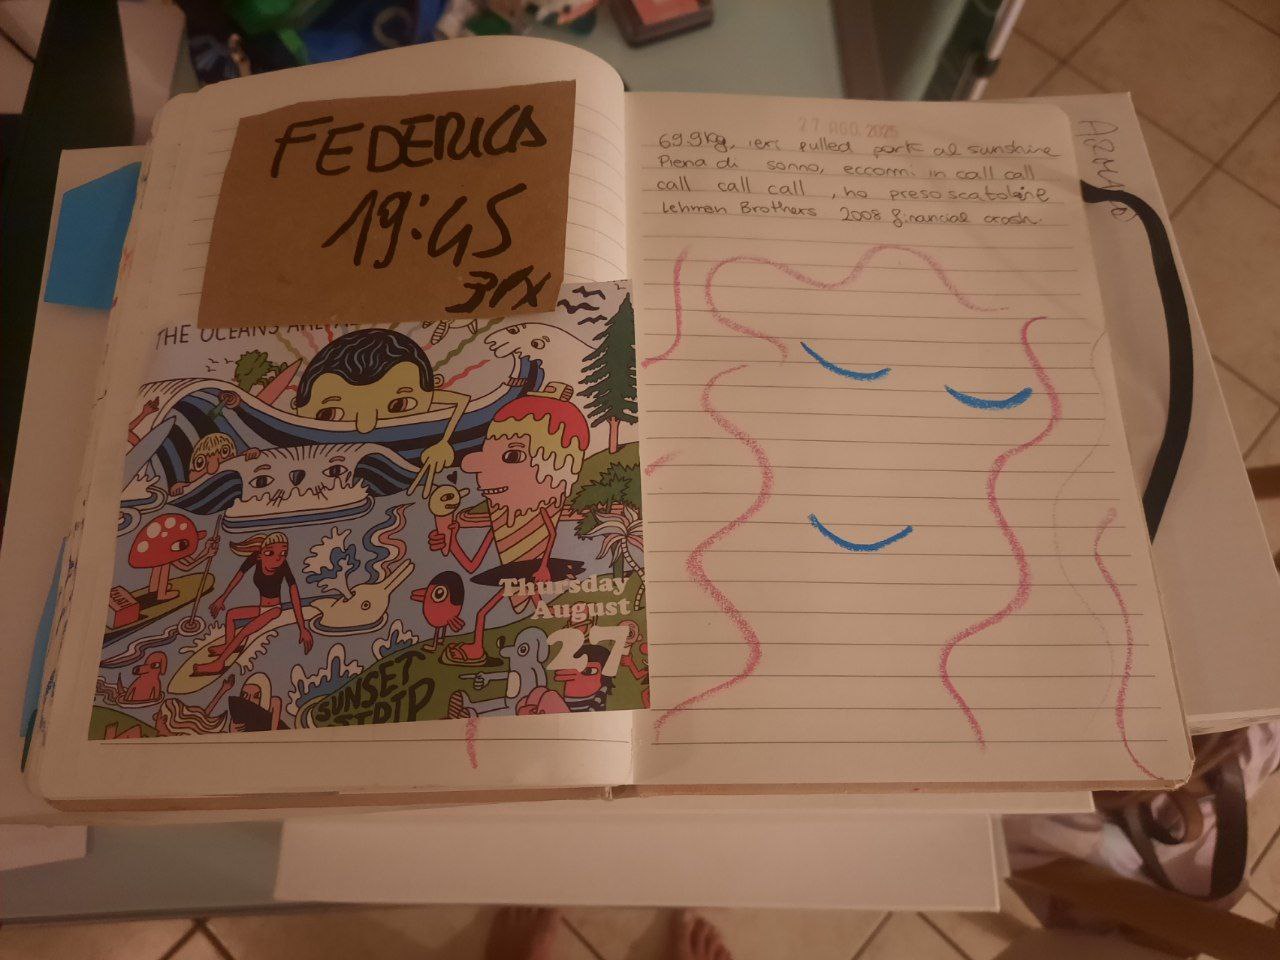 FEDERICA
19:45
3PX
THE OCEANS ARE
Thursday
August
27
SUNSET
STRIP
27 AGO. 2025
69.9kg, ieri pulled pork al sunshine
Piena di sonno, eccomi in call call
call call call, ho preso scatoline
Lehman Brothers 2008 financial crash.